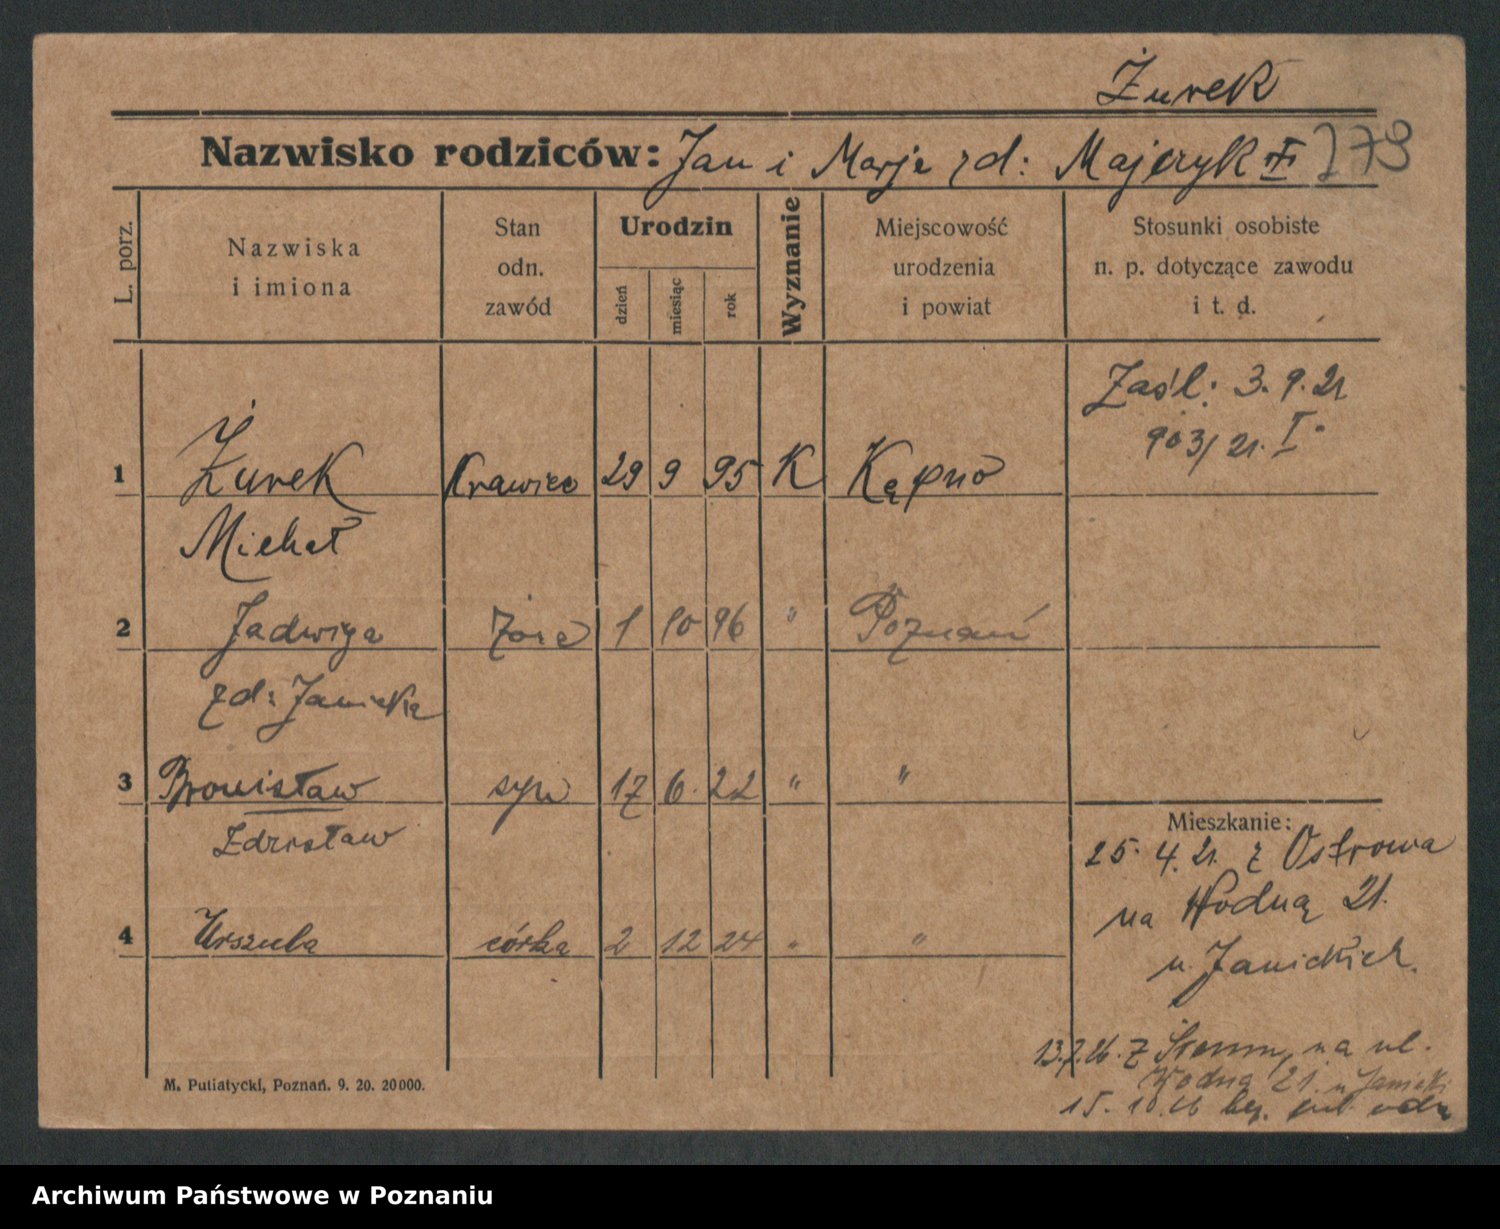 Żurek
Nazwisko rodziców: Jan i Marje zd: Majczyk 279
L. porz.
Nazwiska
i imiona
Stan
odn.
zawód
Urodzin
dzień
miesiąc
rok
Wyznanie
Miejscowość
urodzenia
i powiat
Stosunki osobiste
n. p. dotyczące zawodu
i t. d.
Zaśl: 3. 9. 21
903/21. I
1 Żurek Krawiec 29 9 95 K Kępno
Michał
2 Jadwiga żona 1 10 96 " Poznań
zd: Janicka
3 Bronisław syn 17 6. 22 " "
Zdzisław
4 Urszula córka 2 12 24 " "
Mieszkanie:
25. 4. 21. z Ostrowa
na Wodną 21.
u Janickich.
13.7.26. z Śremu, na ul.
Wodna 21. u Janicki
15. 10. 26
M. Putiatycki, Poznań. 9. 20. 20000.
Archiwum Państwowe w Poznaniu